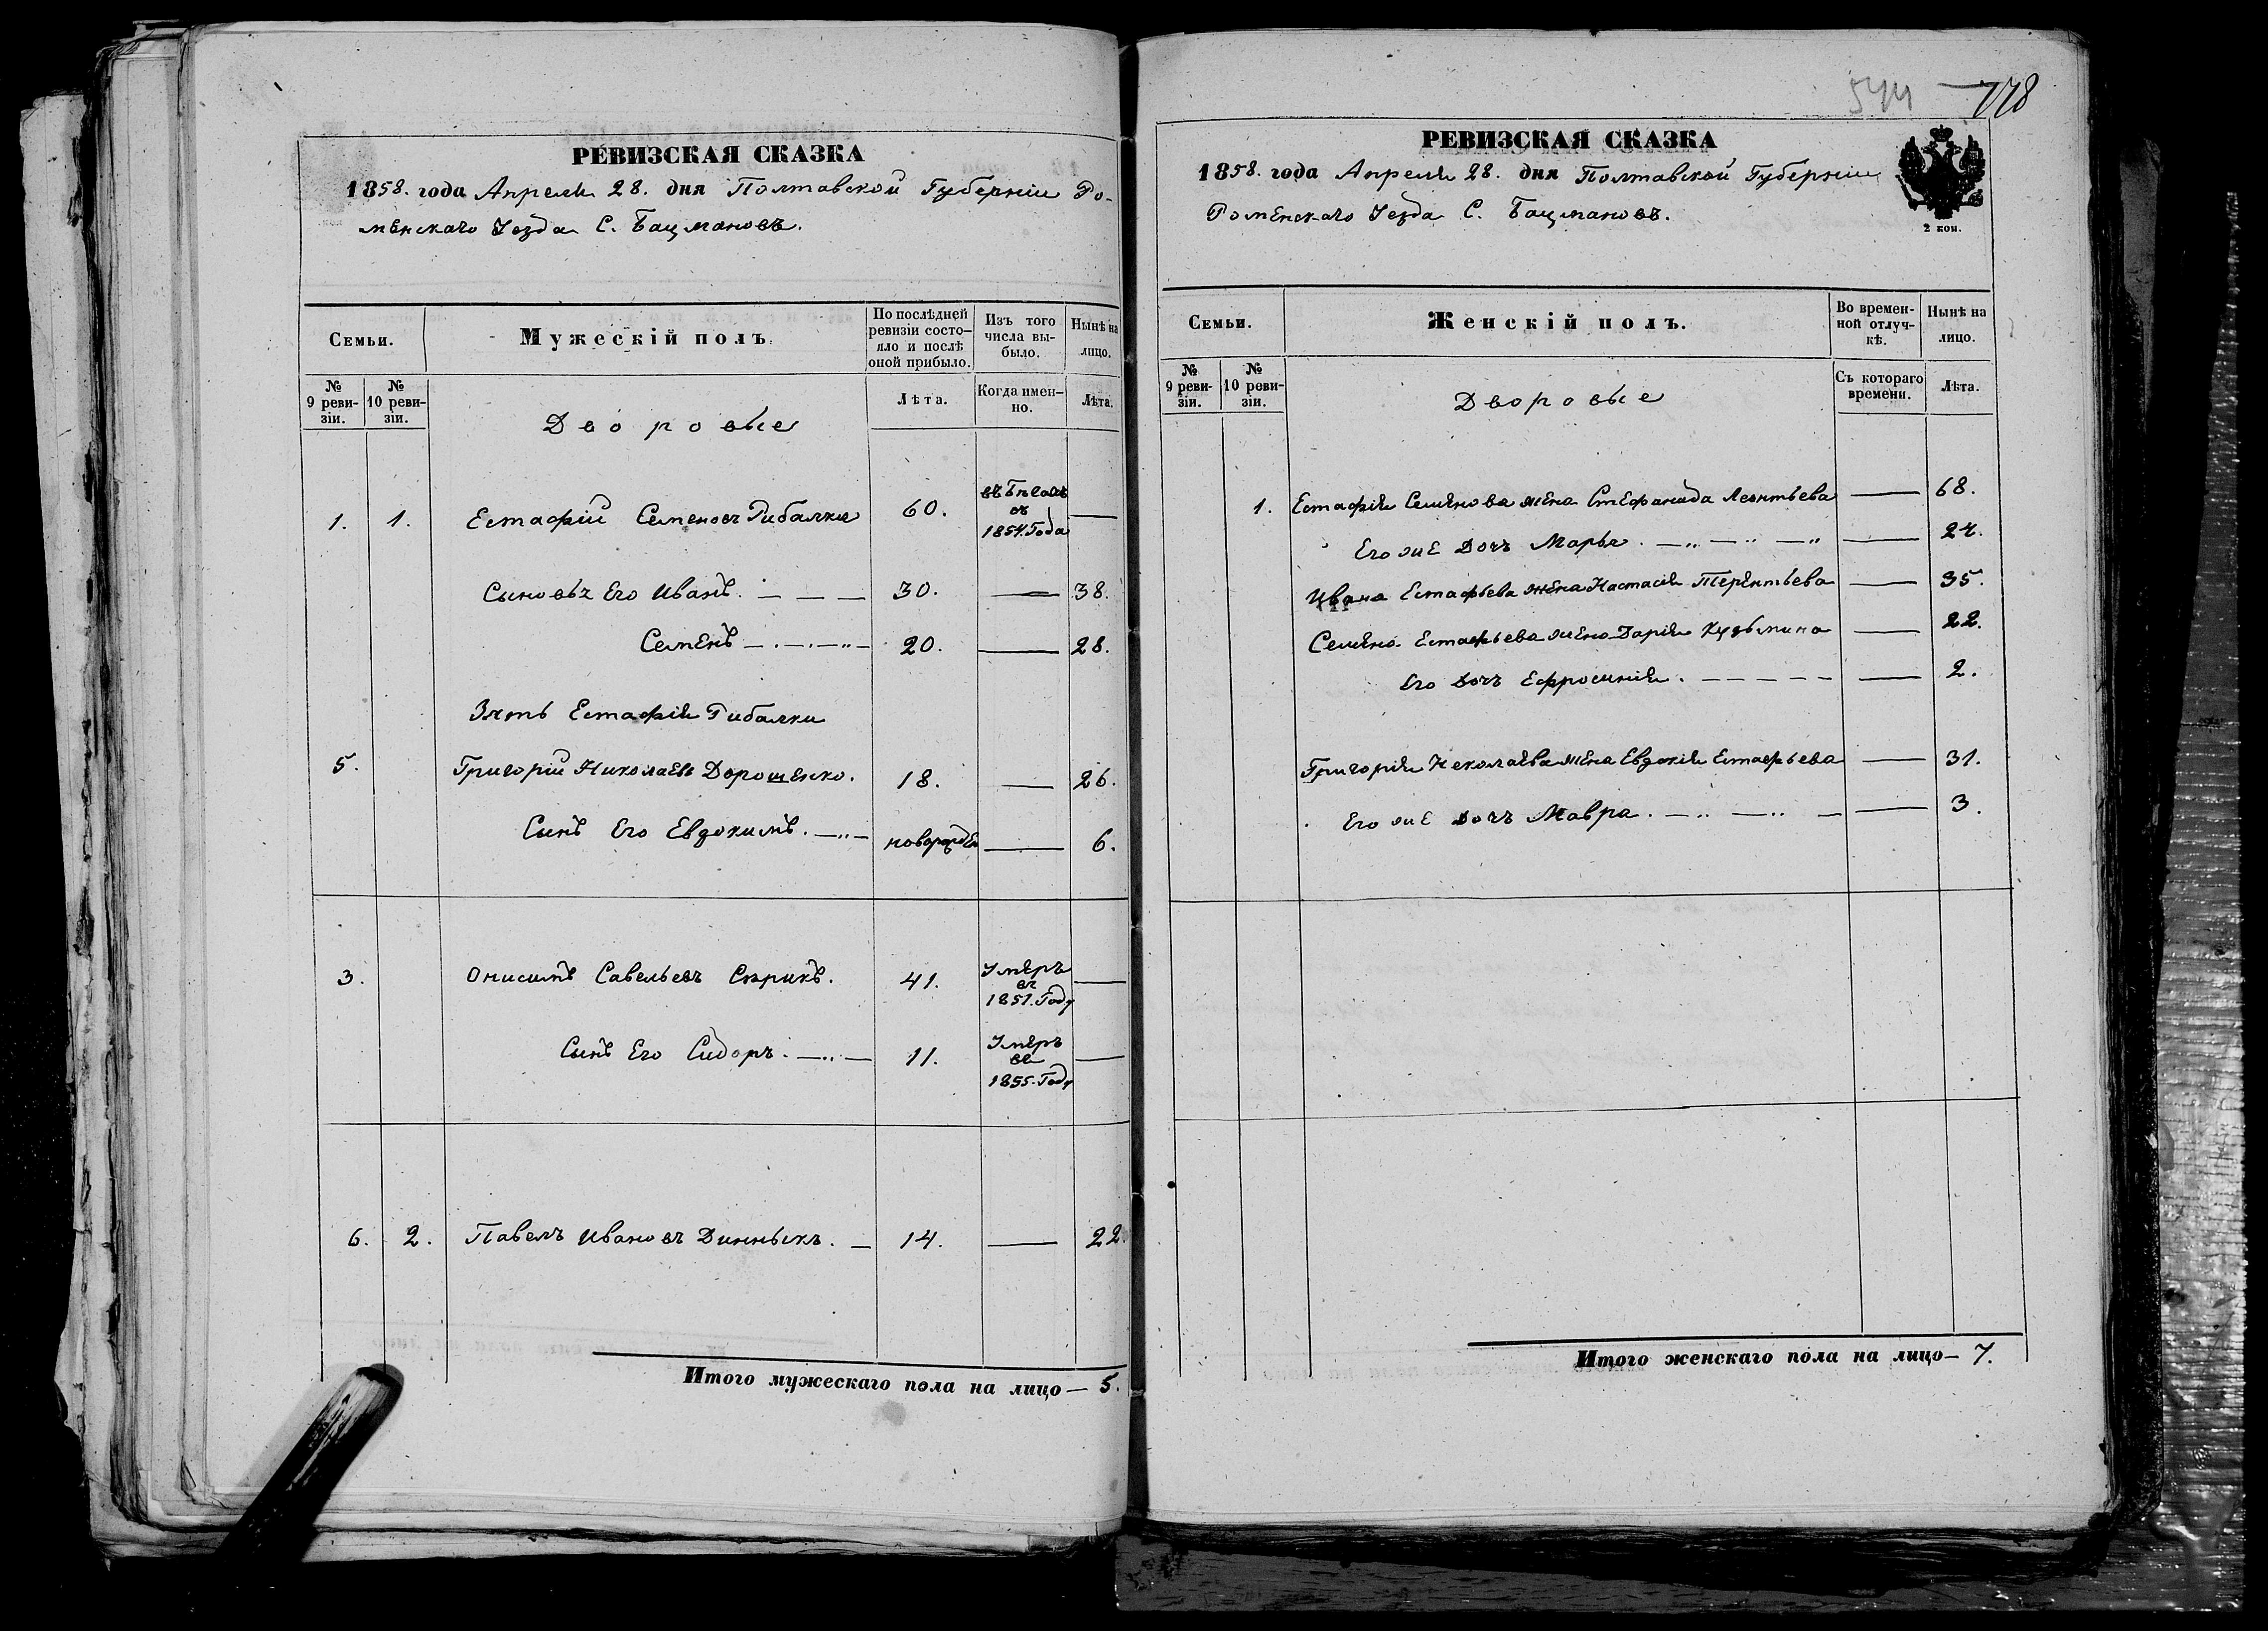 РЕВИЗСКАЯ СКАЗКА
1858. года Апреля 28. дня Полтавской Губерніи Ро-
менскаго Уезда С. Бацмановъ.
Семьи.
Мужескій полъ.
По послѣдней ревизіи состояло и послѣ оной прибыло.
Изъ того числа выбыло.
Нынѣ на лицо.
№ 9 ревизіи.
№ 10 ревизіи.
Дворовые
Лѣта.
Когда именно.
Лѣта.
1. 1. Естафій Семеновъ Рибалка 60. въ Бѣгахъ съ 1854. Года —
Сыновья Его Иванъ. — — — 30. — 38.
Семенъ — . — . — „ — 20. — 28.
Зять Естафія Рибалки
5. Григорій Николаевъ Дорошенко. 18. — 26.
Сынъ Его Евдокимъ. — „ — новорожден — 6.
3. Онисимъ Савельевъ Сѣрикъ. 41. Умеръ въ 1851. Году —
Сынъ Его Сидоръ. — „ — 11. Умеръ въ 1855. Году —
6. 2. Павелъ Ивановъ . — 14. — 22.
Итого мужескаго пола на лицо — 5.
544 — 778
РЕВИЗСКАЯ СКАЗКА
1858. года Апреля 28. дня Полтавской Губерніи
Роменскаго Уезда С. Бацмановъ.
2 коп.
Семьи.
Женскій полъ.
Во временной отлучкѣ.
Нынѣ на лицо.
№ 9 ревизіи.
№ 10 ревизіи.
Дворовые
Съ котораго времени.
Лѣта.
1. Естафія Семянова жена Стефанида Леонтьева — 68.
Его же Дочь Марья. — „ — „ — „ — 24.
Ивана Естафьева жена Настасія Терентьева — 35.
Семена Естафьева жена Дарія Кузьмина — 22.
Его Дочь Ефросинія. — — — — — — 2.
Григорія Неколаева жена Евдокія Естафьева — 31.
Его же Дочь Мавра. — „ — „ — — 3.
Итого женскаго пола на лицо — 7.